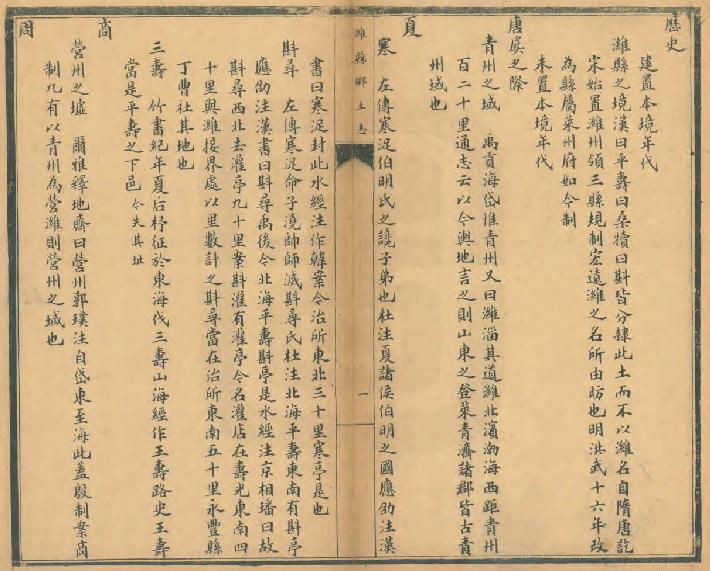 歷史
建置本境年代
濰縣之境漢曰平壽曰桑犢曰斟皆分隸此土而不以濰名自隋唐訖
宋始置濰州領三縣規制宏遠濰之名所由昉也明洪武十六年改
為縣屬萊州府如今制
未置本境年代
唐虞之際
青州之域 禹貢海岱惟青州又曰濰淄其道濰北濱渤海西距青州
百二十里通志云以今輿地言之則山東之登萊青濟諸郡皆古青
州域也
夏
寒 左傳寒浞伯明氏之讒子弟也杜注夏諸侯伯明之國應劭注漢
濰縣鄉土志
一
書曰寒浞封此水經注作韓案今治所東北三十里寒亭是也
斟尋 左傳寒浞命子澆帥師滅斟尋氏杜注北海平壽東南有斟亭
應劭注漢書曰斟尋禹後今北海平壽斟亭是水經注京相璠曰故
斟尋西北去灌亭九十里案斟灌有灌亭今名灌店在壽光東南四
十里與濰接界處以里數計之斟尋當在治所東南五十里永豐縣
丁曹社其地也
三壽 竹書紀年夏后杼征於東海伐三壽山海經作王壽路史王壽
當是平壽之下邑 今失其址
商
營州之墟 爾雅釋地齊曰營州郭璞注自岱東至海此蓋殷制案商
制九有以青州為營濰則營州之域也
周